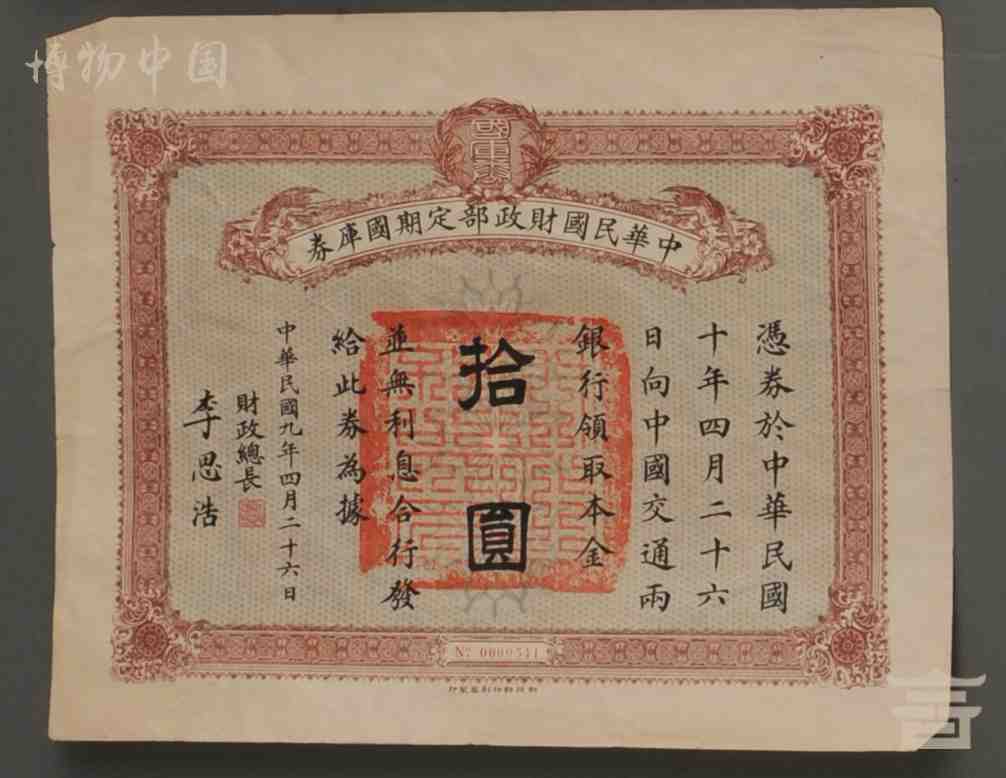 博物中国
國庫券
中華民國財政部定期國庫券
憑券於中華民國
十年四月二十六
日向中國交通兩
銀行領取本金
拾圓
並無利息合行發
給此券為據
中華民國九年四月二十六日
財政總長
李思浩
No 0000541